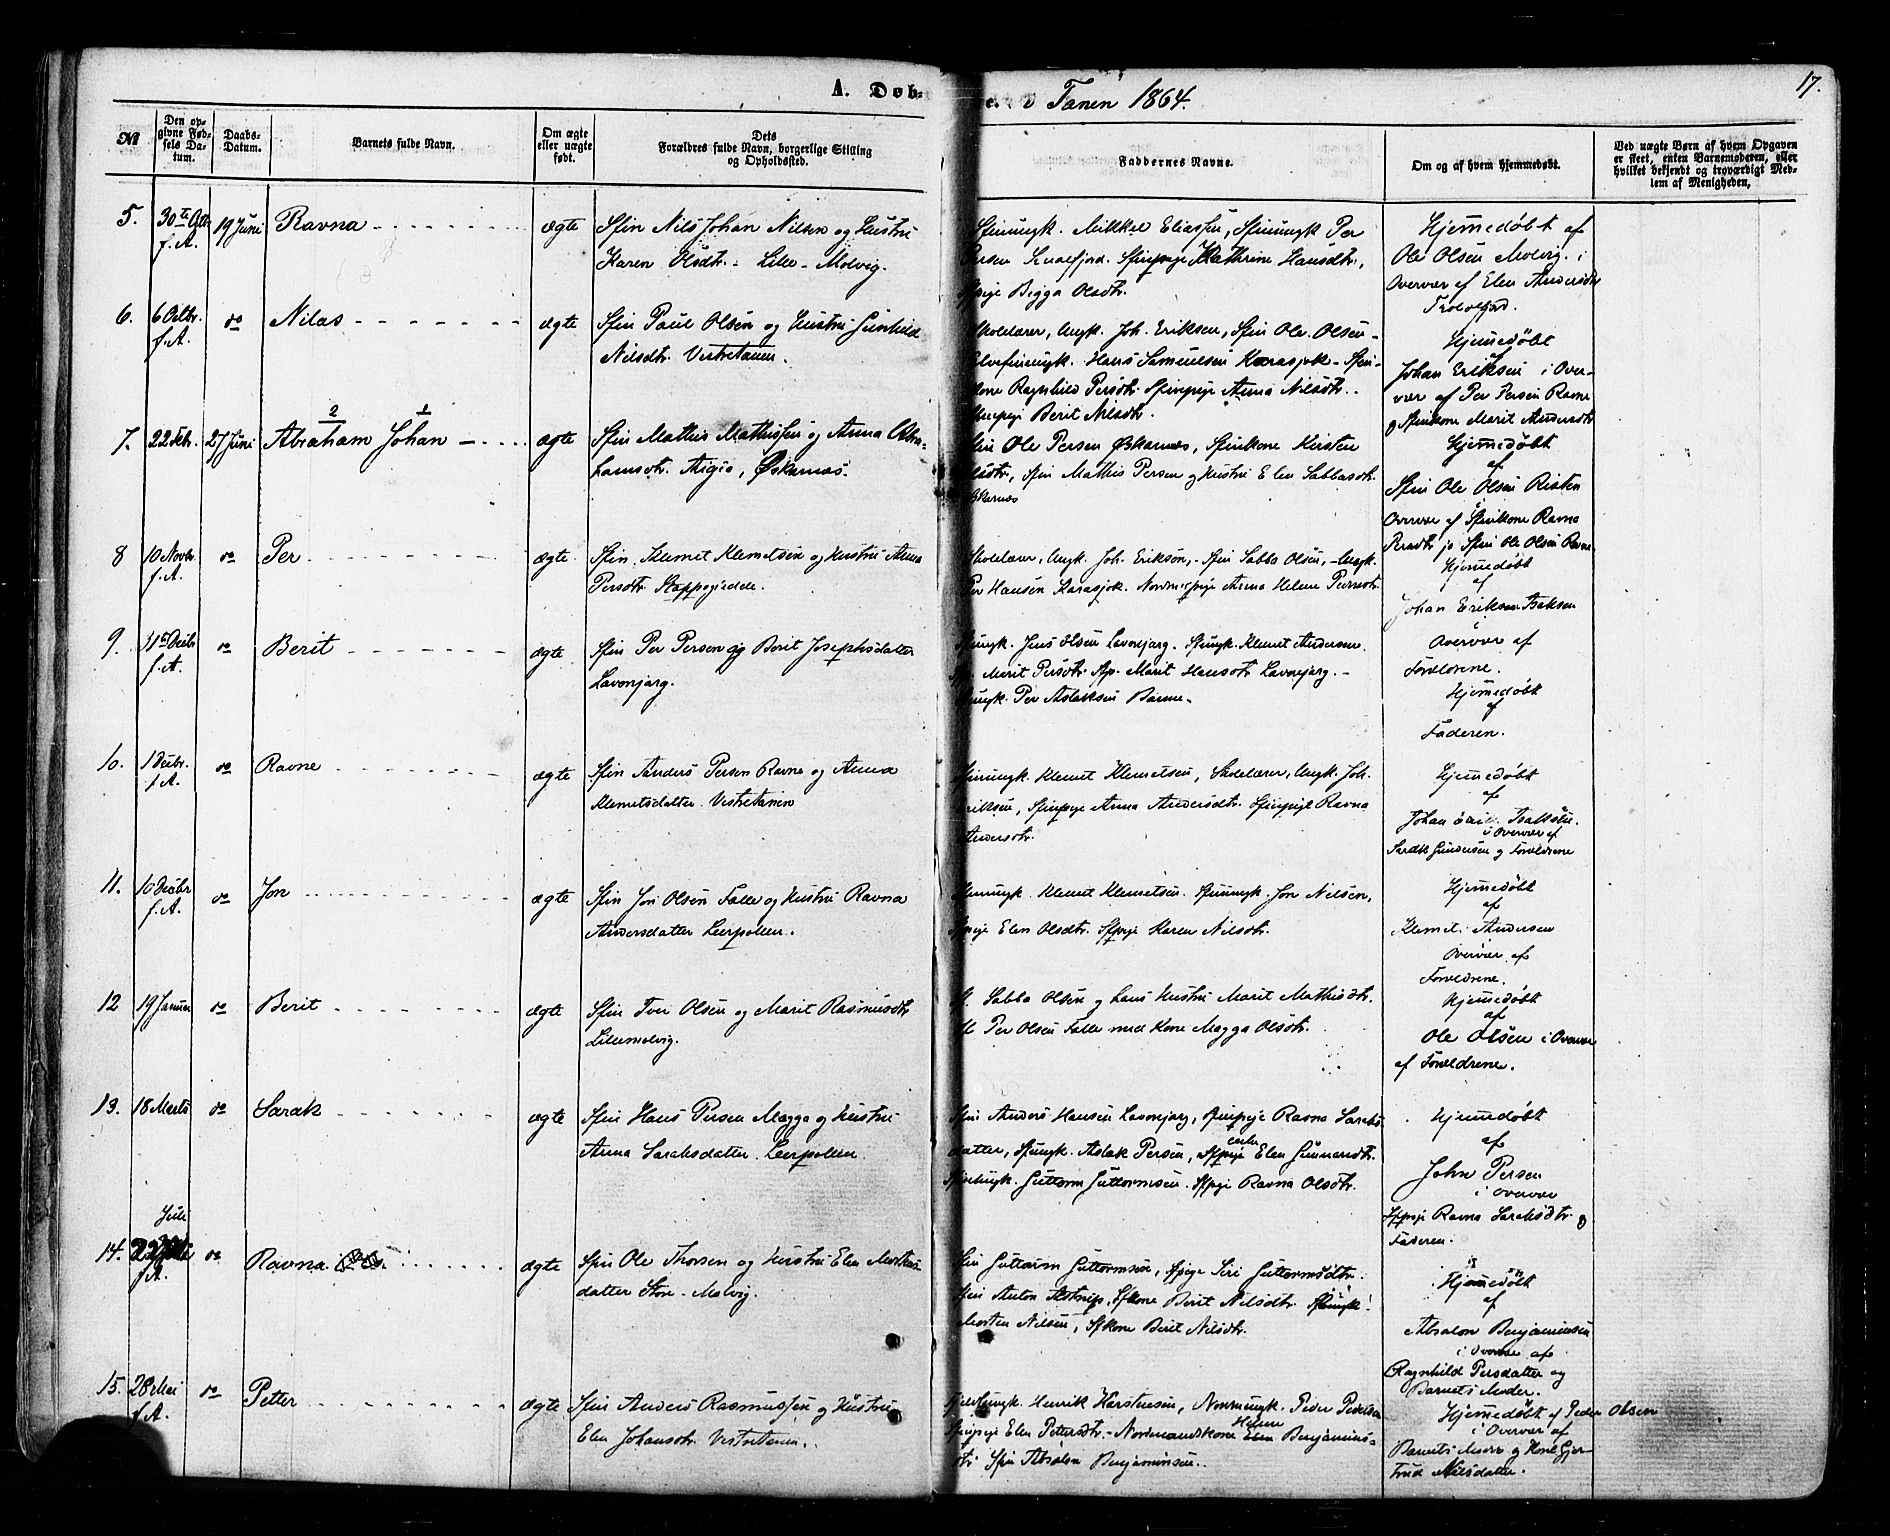 A. Døb-
i Tanen 1864.
17.
№
Den op-
givne Fød-
sels Da-
tum.
Daabs-
Datum.
Barnets fulde Navn.
Om ægte
eller uægte
født.
Dets
Forældres fulde Navn, borgerlige Stilling
og Opholdssted.
Faddernes Navne.
Om og af hvem hjemmedøbt.
Ved uægte Børn af hvem Opgaven
er skeet, enten Barnemoderen, eller
hvilket bekjendt og troværdigt Med-
lem af Menigheden.
5. 30te Octb. f. A. 19 Juni Ravna ægte
Sfin Nils Johan Nilsen og Hustru
Karen Olsdtr. - Lille-Molvig.
Mikkel Eliassen, Per
Persen Kathrine Hansdtr.,
Bigga Olsdtr.
Hjemmedøbt af
Ole Olsen Molvig i
Overvær af Elen Andersdtr
6. 6 Octbr. f. A. do Nilas ægte
Sfin Paul Olsen og Hustru Gunhild
Nilsdtr. Vestretanen.
Ungk. Joh. Eriksen, Sfin Ole Olsen -
Hans Samuelsen Karasjok - Sfin-
kone Ragnhild Persdtr. Sfinpige Anna Nilsdtr.
Berit Nilsdtr.
Hjemmedøbt
Johan Eriksen i Over-
vær af Per Persen Ravne
og Sfinkone Marit Andersdtr
7. 22 Febr. 27 Juni Abraham Johan ægte
2 1
Sfin Mathis Mathissen og Anna Abra-
hamsdtr. Aigis, Øskarnæs.
Ole Persen Øskarnæs, Sfinkone Kirsten
Sfin Mathis Persen og Hustru Elen Sabbasdtr.
Hjemmedøbt
af
Sfin Ole Olsen Risten
Overvær af Sfinkone Ravna
Persdtr Sfin Ole Olsen Ravna
8 10 Novbr f. A. do Per ægte
Sfin Klemet Klemetsen og Hustru Anna
Persdtr. Stappogiedde.
Ungk. Joh. Eriksen, - Sfin Sabba Olsen, - Ungk.
Per Hansen Karasjok. Anna Helene
Hjemmedøbt
af
Johan Eriksen Isaksen
Overvær af
Forældrene.
9. Decbr f. A. do Berit ægte
Sfin Per Persen og Berit Josephsdatter
Lavonjarg.
Jens Olsen Lavonjarg. Sfungk. Klemet Andersen
Marit Persdtr. Marit Hansdtr Lavonjarg. -
Per Aslaksen
Hjemmedøbt
af
Faderen.
10. 1 Decbr. f. A. do Ravne ægte
Sfin Anders Persen Ravna og Anna
Klemetsdatter. Vestretanen
Klemet Klemetsen, Skolelærer, Ungk. Joh.
Eriksen, Sfinpige Anna Andersdtr. Sfinpige Ravna
Andersdtr.
Hjemmedøbt
af
Johan Isaksen.
i Overvær af
Gundersen og Forældrene
11. 10 Decbr f. A. do Jon ægte
Sfin Jon Olsen Falle og Hustru Ravna
Andersdatter Leerpollen.
Klemet Klemetsen. Jon Nilsen,
Elen Olsdtr. Karen Nilsdtr.
Hjemmedøbt
af
Klemet Andersen
Overvær af
Forældrene.
12 19 Januar do Berit ægte
Sfin Iver Olsen og Marit Rasmusdtr
Lillemolvig.
Sabba Olsen og hans Hustru Marit Mathisdtr.
Per Olsen Falle med Kone Magga Olsdtr.
Hjemmedøbt
af
Ole Olsen i Overvær
af Forældrene.
13. 18 Marts do Sarak ægte
Sfin Hans Persen Magga og Hustru
Anna Saraksdatter. Leerpollen.
Anders Hansen Lavonjarg, Sfinpige Ravna Saraks-
datter, Sfungk. Aslak Persen, Elen Gunnarsdtr.
Guttorm Guttormsen. Ravna Olsdtr.
Hjemmedøbt
af
John Persen
i Overvær
Ravna Saraksdtr. og
Faderen.
14. Juli f. A. do Ravna ægte
Sfin Ole Thorsen og Hustru Elen Morten-
datter Store-Molvig.
Sfin Guttorm Guttormsen, Siri Guttormsdtr.
Sfin Anton Berit Nilsdtr.
Morten Nilsen, Sfkone Berit Nilsdtr.
Hjemmedøbt
af
Absalon Benjaminsen
i Overvær af
Ragnhild Persdatter og
Barnets Moder.
15. 28 Mai f. A. do Petter ægte
Sfin Anders Rasmussen og Hustru
Elen Johansdtr. Vestretanen.
Henrik Peder Pedersen
Sfinpige Elen Pettersdtr. - Nordmandskone Helene Benjamins-
dtr Sfin Absalon Benjaminsen.
Hjemmedøbt af Peder Olsen
i Overvær af
Barnets Moder og Kone Gjer-
trud Nilsdatter.